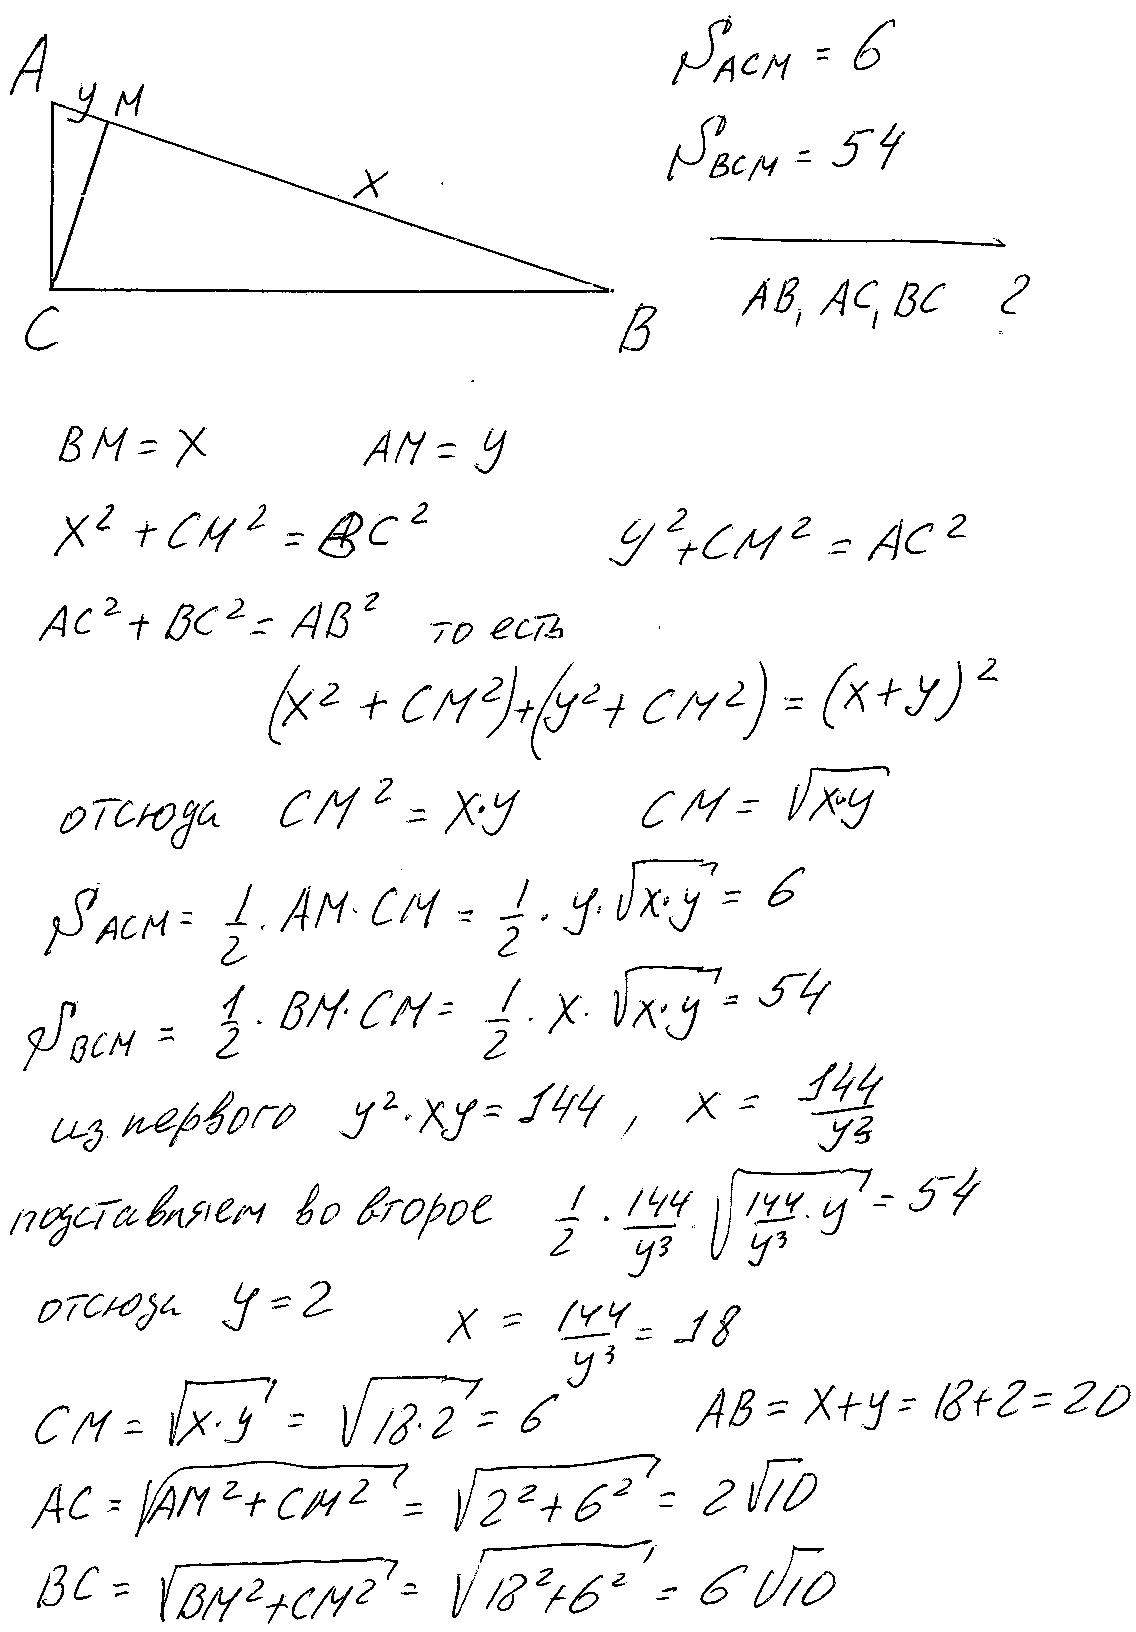 A
y M
x
C
B
S_ACM = 6
S_BCM = 54
AB, AC, BC ?
BM = x AM = y
x² + CM² = BC² y² + CM² = AC²
AC² + BC² = AB² то есть
(x² + CM²) + (y² + CM²) = (x + y)²
отсюда CM² = x·y CM = √(x·y)
S_ACM = 1/2 · AM · CM = 1/2 · y · √(x·y) = 6
S_BCM = 1/2 · BM · CM = 1/2 · x · √(x·y) = 54
из первого y² · xy = 144, x = 144/y³
подставляем во второе 1/2 · 144/y³ · √(144/y³ · y) = 54
отсюда y = 2 x = 144/y³ = 18
CM = √(x·y) = √(18·2) = 6 AB = x + y = 18 + 2 = 20
AC = √(AM² + CM²) = √(2² + 6²) = 2√10
BC = √(BM² + CM²) = √(18² + 6²) = 6√10